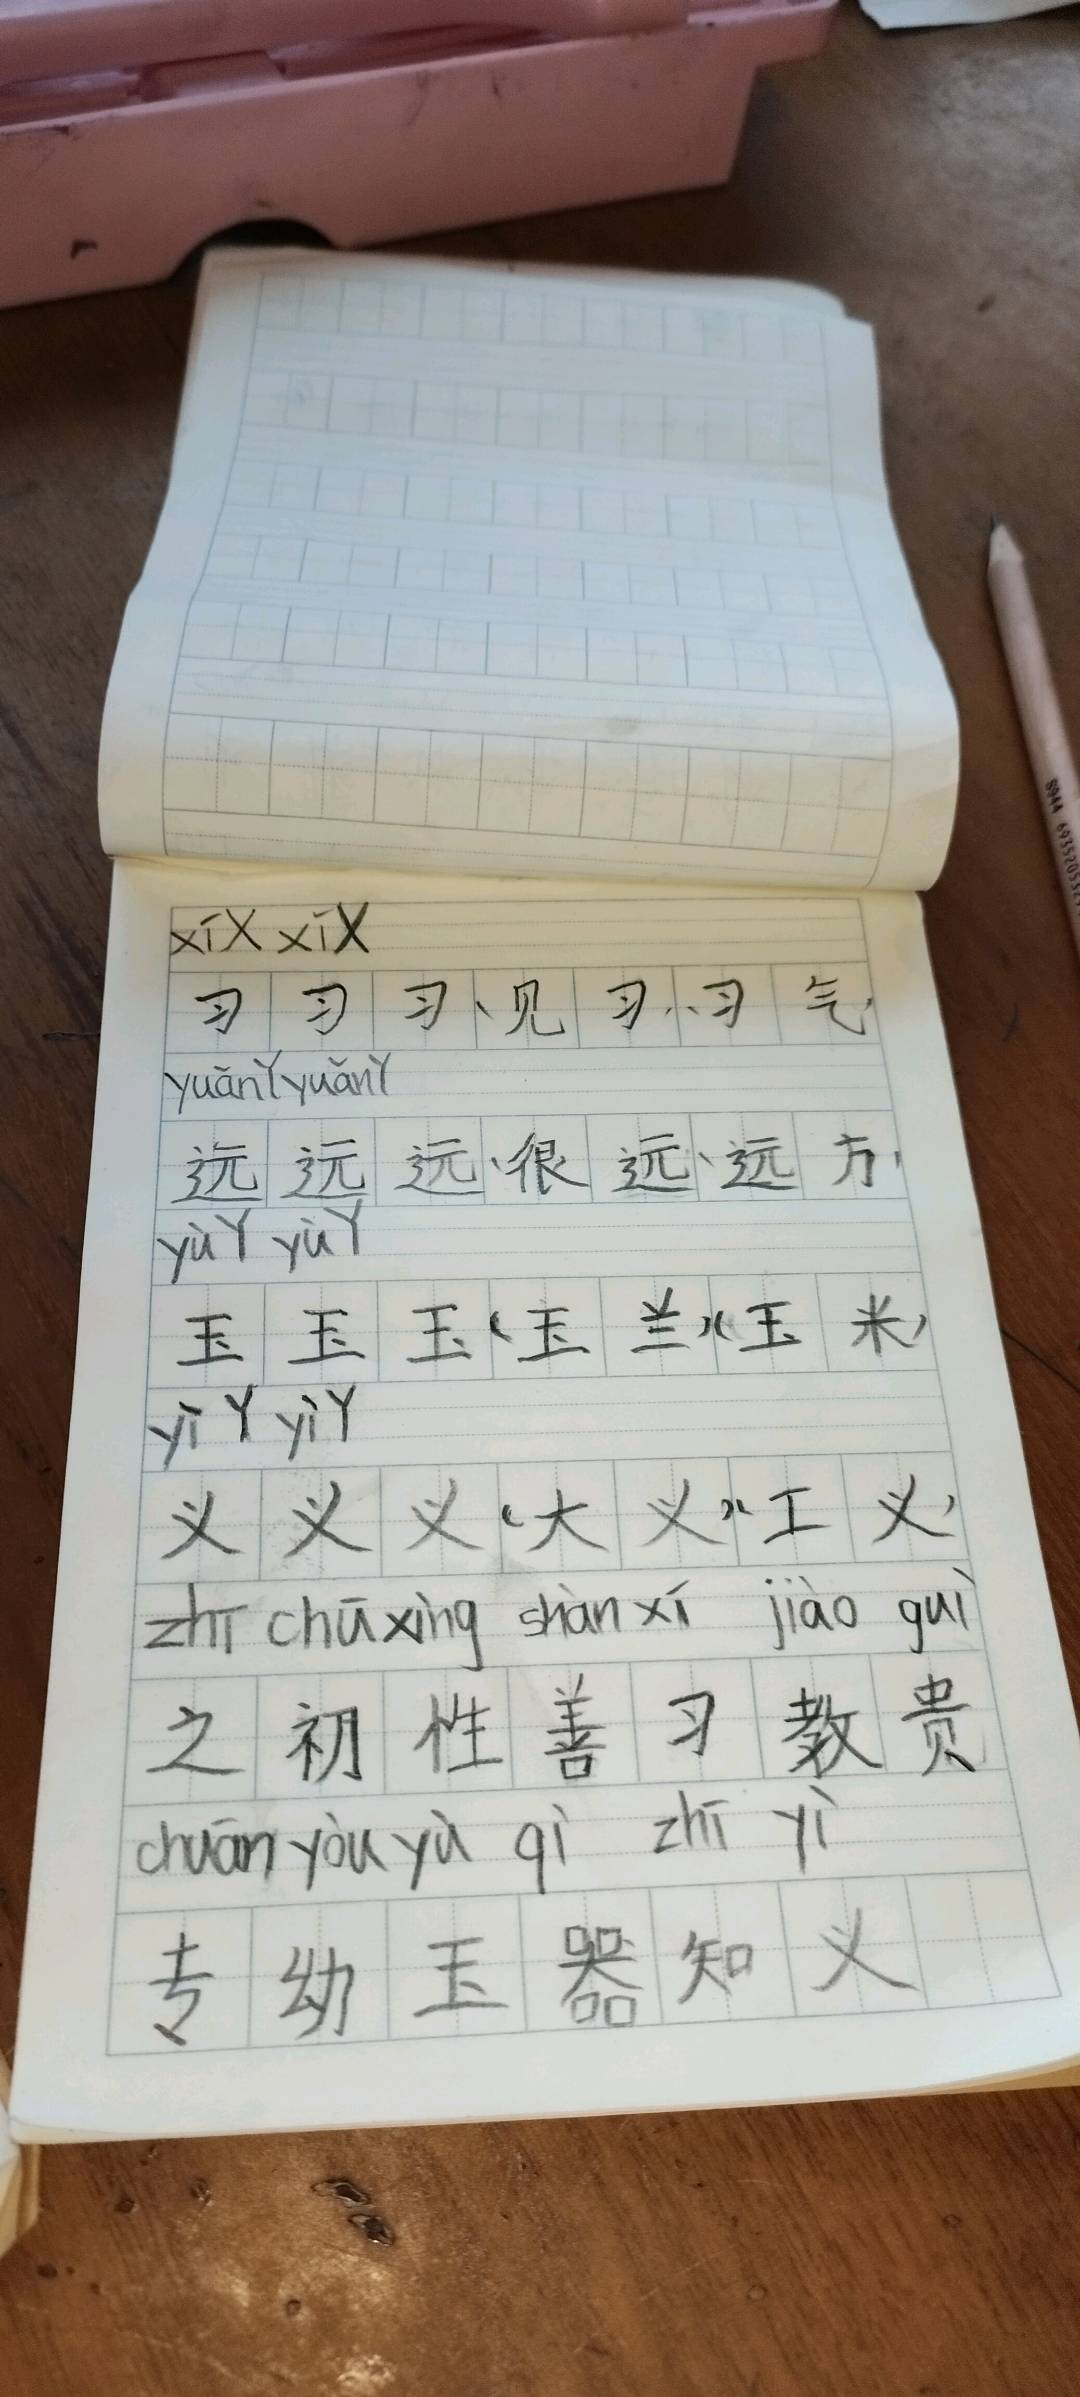 xīX xīX
习习习、见习、、习气、
yuǎnY yuǎnY
远远远、很远、远方、
yùY yùY
玉玉玉(玉兰)(玉米)
yīY yìY
义义义(大义)(工义)
zhī chū xìng shàn xí jiào guì
之初性善习教贵
chuān yòu yù qì zhī yì
专幼玉器知义
8944 693520532